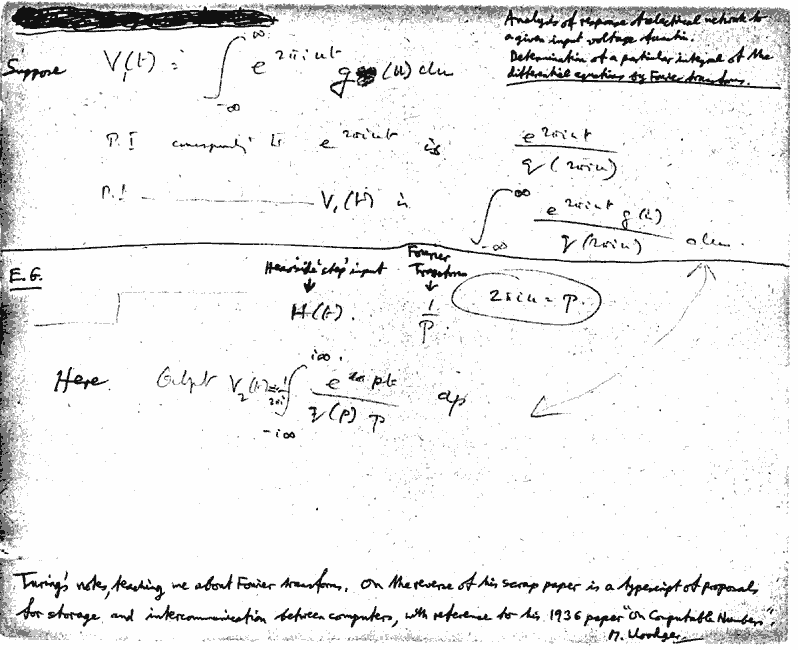 Analysis of response of electrical network to
a given input voltage function.
Determination of a particular integral of the
differential equations by Fourier transforms.
Suppose V₁(t) = ∫_{-∞}^{∞} e^{2πiut} g(u) du
P.I corresponding to e^{2πiut} is e^{2πiut} / q(2πiu)
P.I. V₁(t) is ∫_{-∞}^{∞} e^{2πiut} g(u) / q(2πiu) du.
E.G.
Heaviside 'step' input
Fourier
Transform
H(t). 1/p. 2πiu = p.
Here Output V₂(t) = 1/2πi ∫_{-i∞}^{i∞} e^{pt} / q(p) p dp
Turing's notes, teaching me about Fourier transforms. On the reverse of his scrap paper is a typescript of proposals
for storage and intercommunication between computers, with reference to his 1936 paper "On Computable Numbers".
M. Woodger